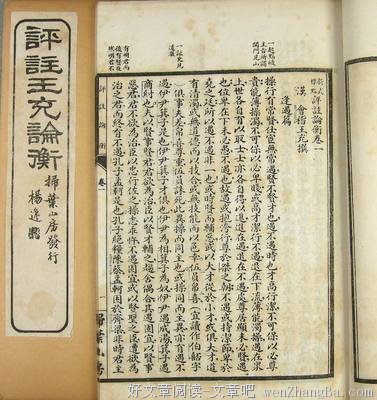 評註王充論衡
掃葉山房發行
楊逸
評註論衡卷一
漢 會稽王充撰
逢遇篇
操行有常賢仕宦無常遇賢不賢才也遇不遇時也才高行潔不可保以必尊
貴能薄操濁不可保以必卑賤或高才潔行不遇退在下流薄能濁操遇在眾
上世各自有以取士士亦各自得以進進在遇退在不遇處尊居顯未必賢遇
也位卑在下未必愚不遇也故遇或抱洿行尊於桀之朝不遇或持潔節卑於
堯之廷所以遇不遇非一也或時賢而輔惡或以大才從於小才或俱大才道
有清濁或無道德而以技合或無技能而以色幸伍員帛喜宜讀作伯嚭字
俱事夫差帛喜尊重伍員誅死此異操而同主也或操同而主異亦有遇不
遇伊尹箕子是也伊尹箕子才俱也伊尹為相箕子為奴伊尹遇成湯箕子遇
商紂也夫以賢事賢君君欲為治臣以賢才輔之趨舍偶合其遇固宜以賢事
惡君君不欲為治臣以忠行佐之操志乖忤不遇固宜或以賢聖之臣遭欲為
治之君而終有不遇孔子孟軻是也孔子絕糧陳蔡孟軻困於齊梁非時君主
評註論衡 卷一 一 掃葉山房
好文章阅读-文章吧 wenZhangBa.com